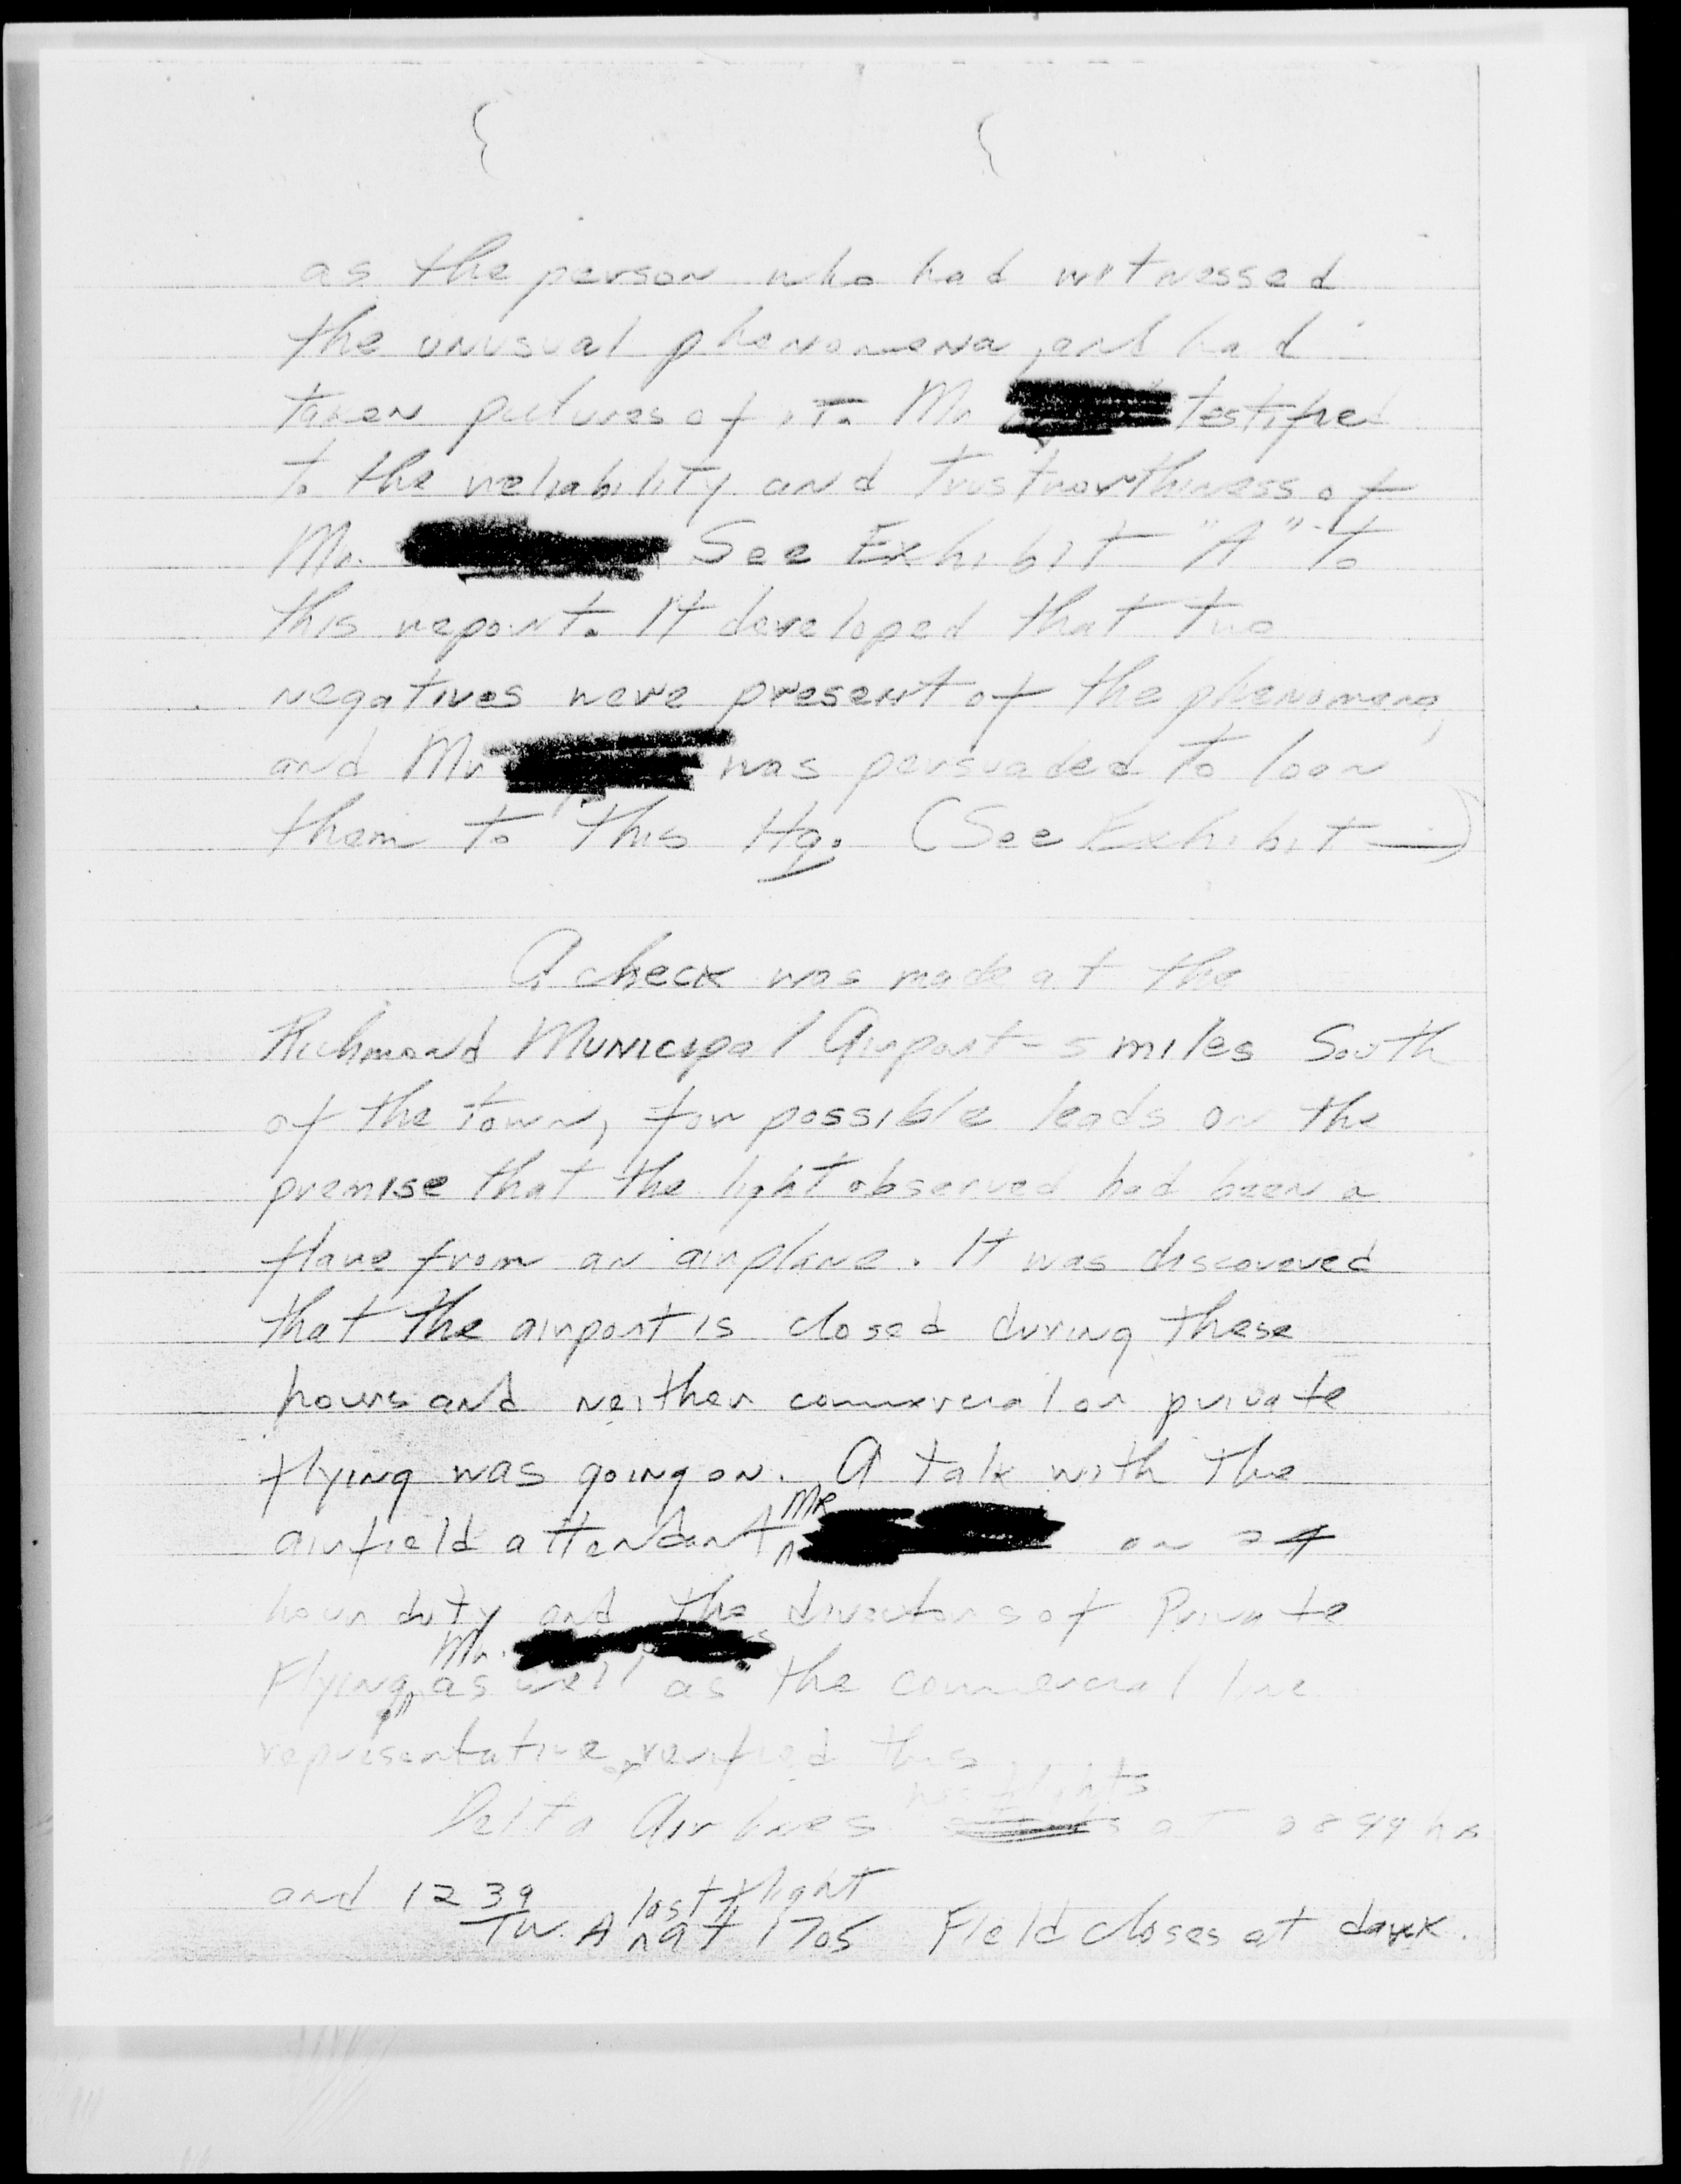 as the person who had witnessed
the unusual phenomena, and had
taken pictures of it. Mr. testified
to the reliability and trustworthiness of
Mr. See Exhibit "A" to
this report. It developed that two
negatives were present of the phenomena,
and Mr was persuaded to loan
them to this Hq. (See Exhibit —)
A check was made at the
Richmond Municipal Airport - 5 miles South
of the town, for possible leads on the
premise that the light observed had been a
flare from an airplane. It was discovered
that the airport is closed during these
hours and neither commercial or private
flying was going on. A talk with the
airfield attendant Mr on 24
hour duty and the directors of Private
Flying, Mr. as well as the commercial line
representative verified this
Delta Air lines has flights at hrs
and 1239
TWA last flight at 1705 Field closes at dark.